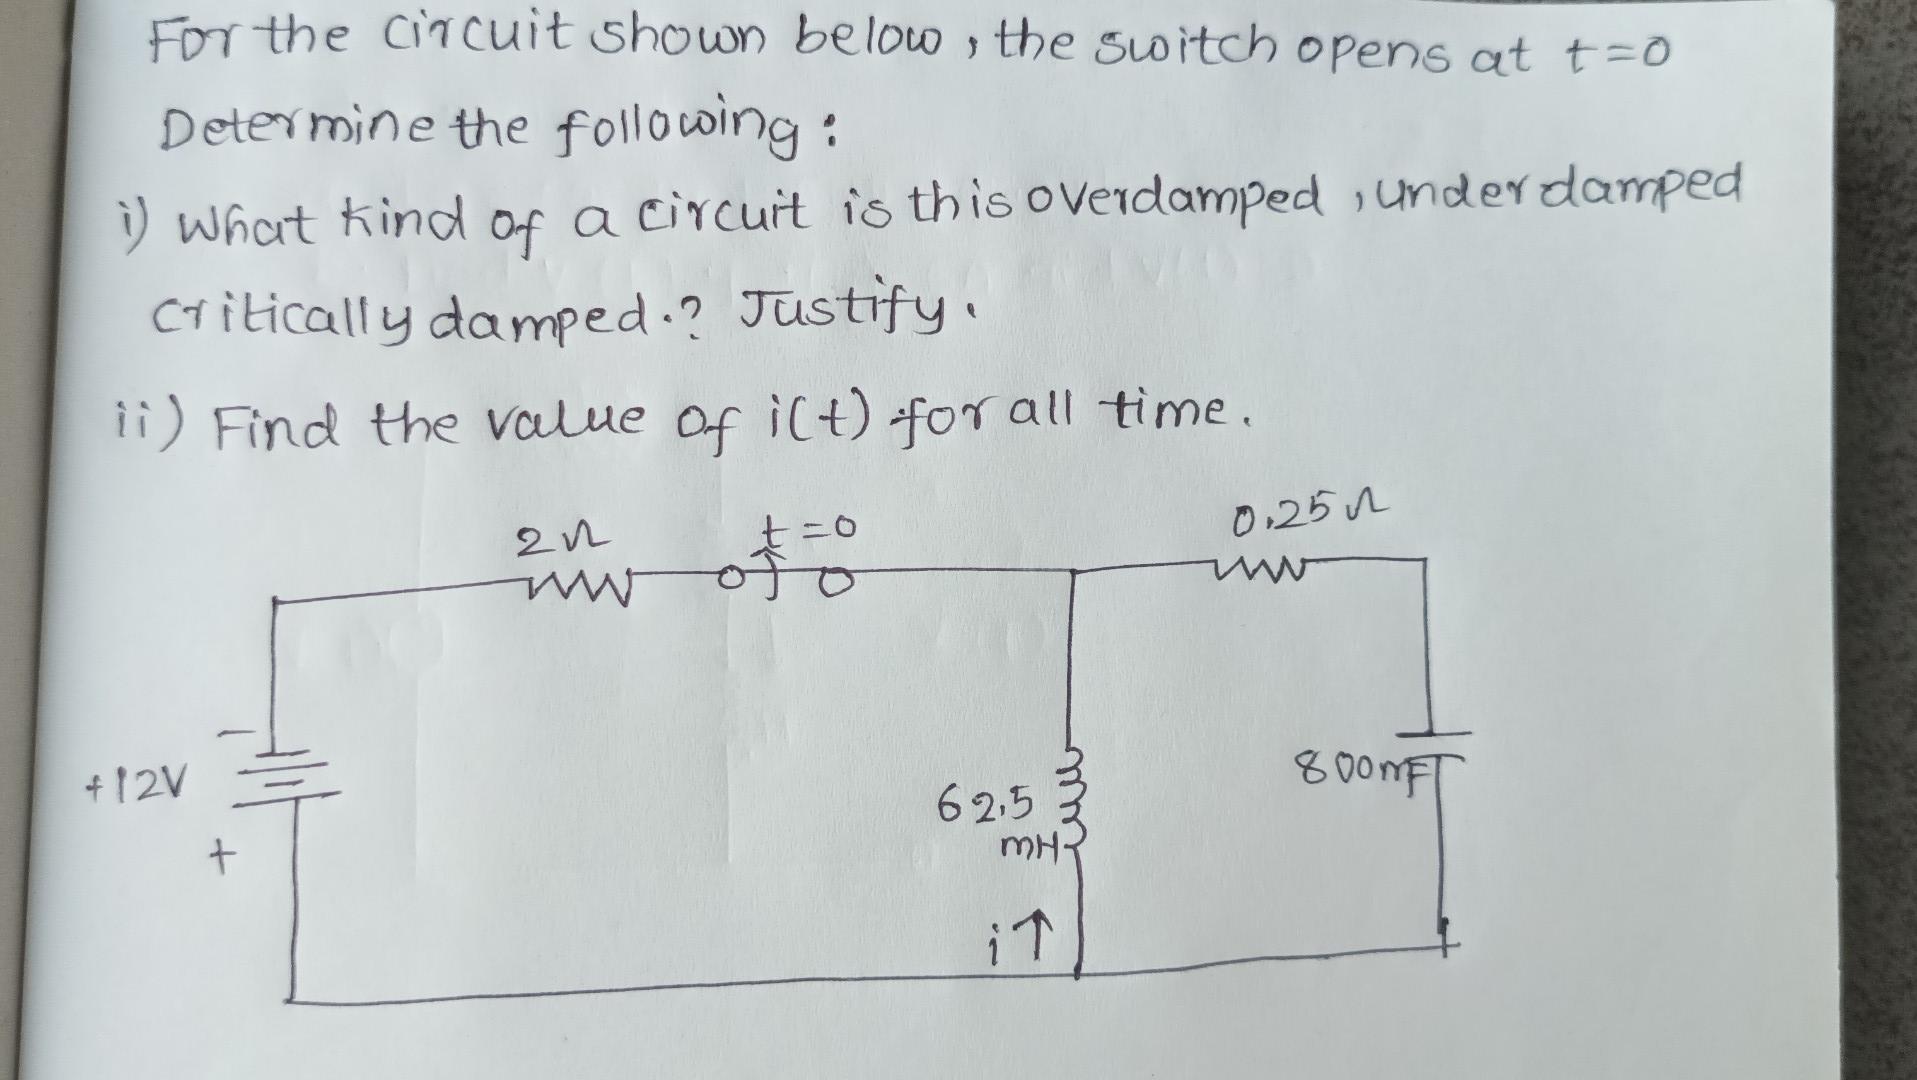 For the circuit shown below, the switch opens at t=0
Determine the following:
i) What kind of a circuit is this overdamped, underdamped
critically damped.? Justify.
ii) Find the value of i(t) for all time.
0.25Ω
2Ω
t=0
−
+12V
+
62.5
mH
800mF
i↑